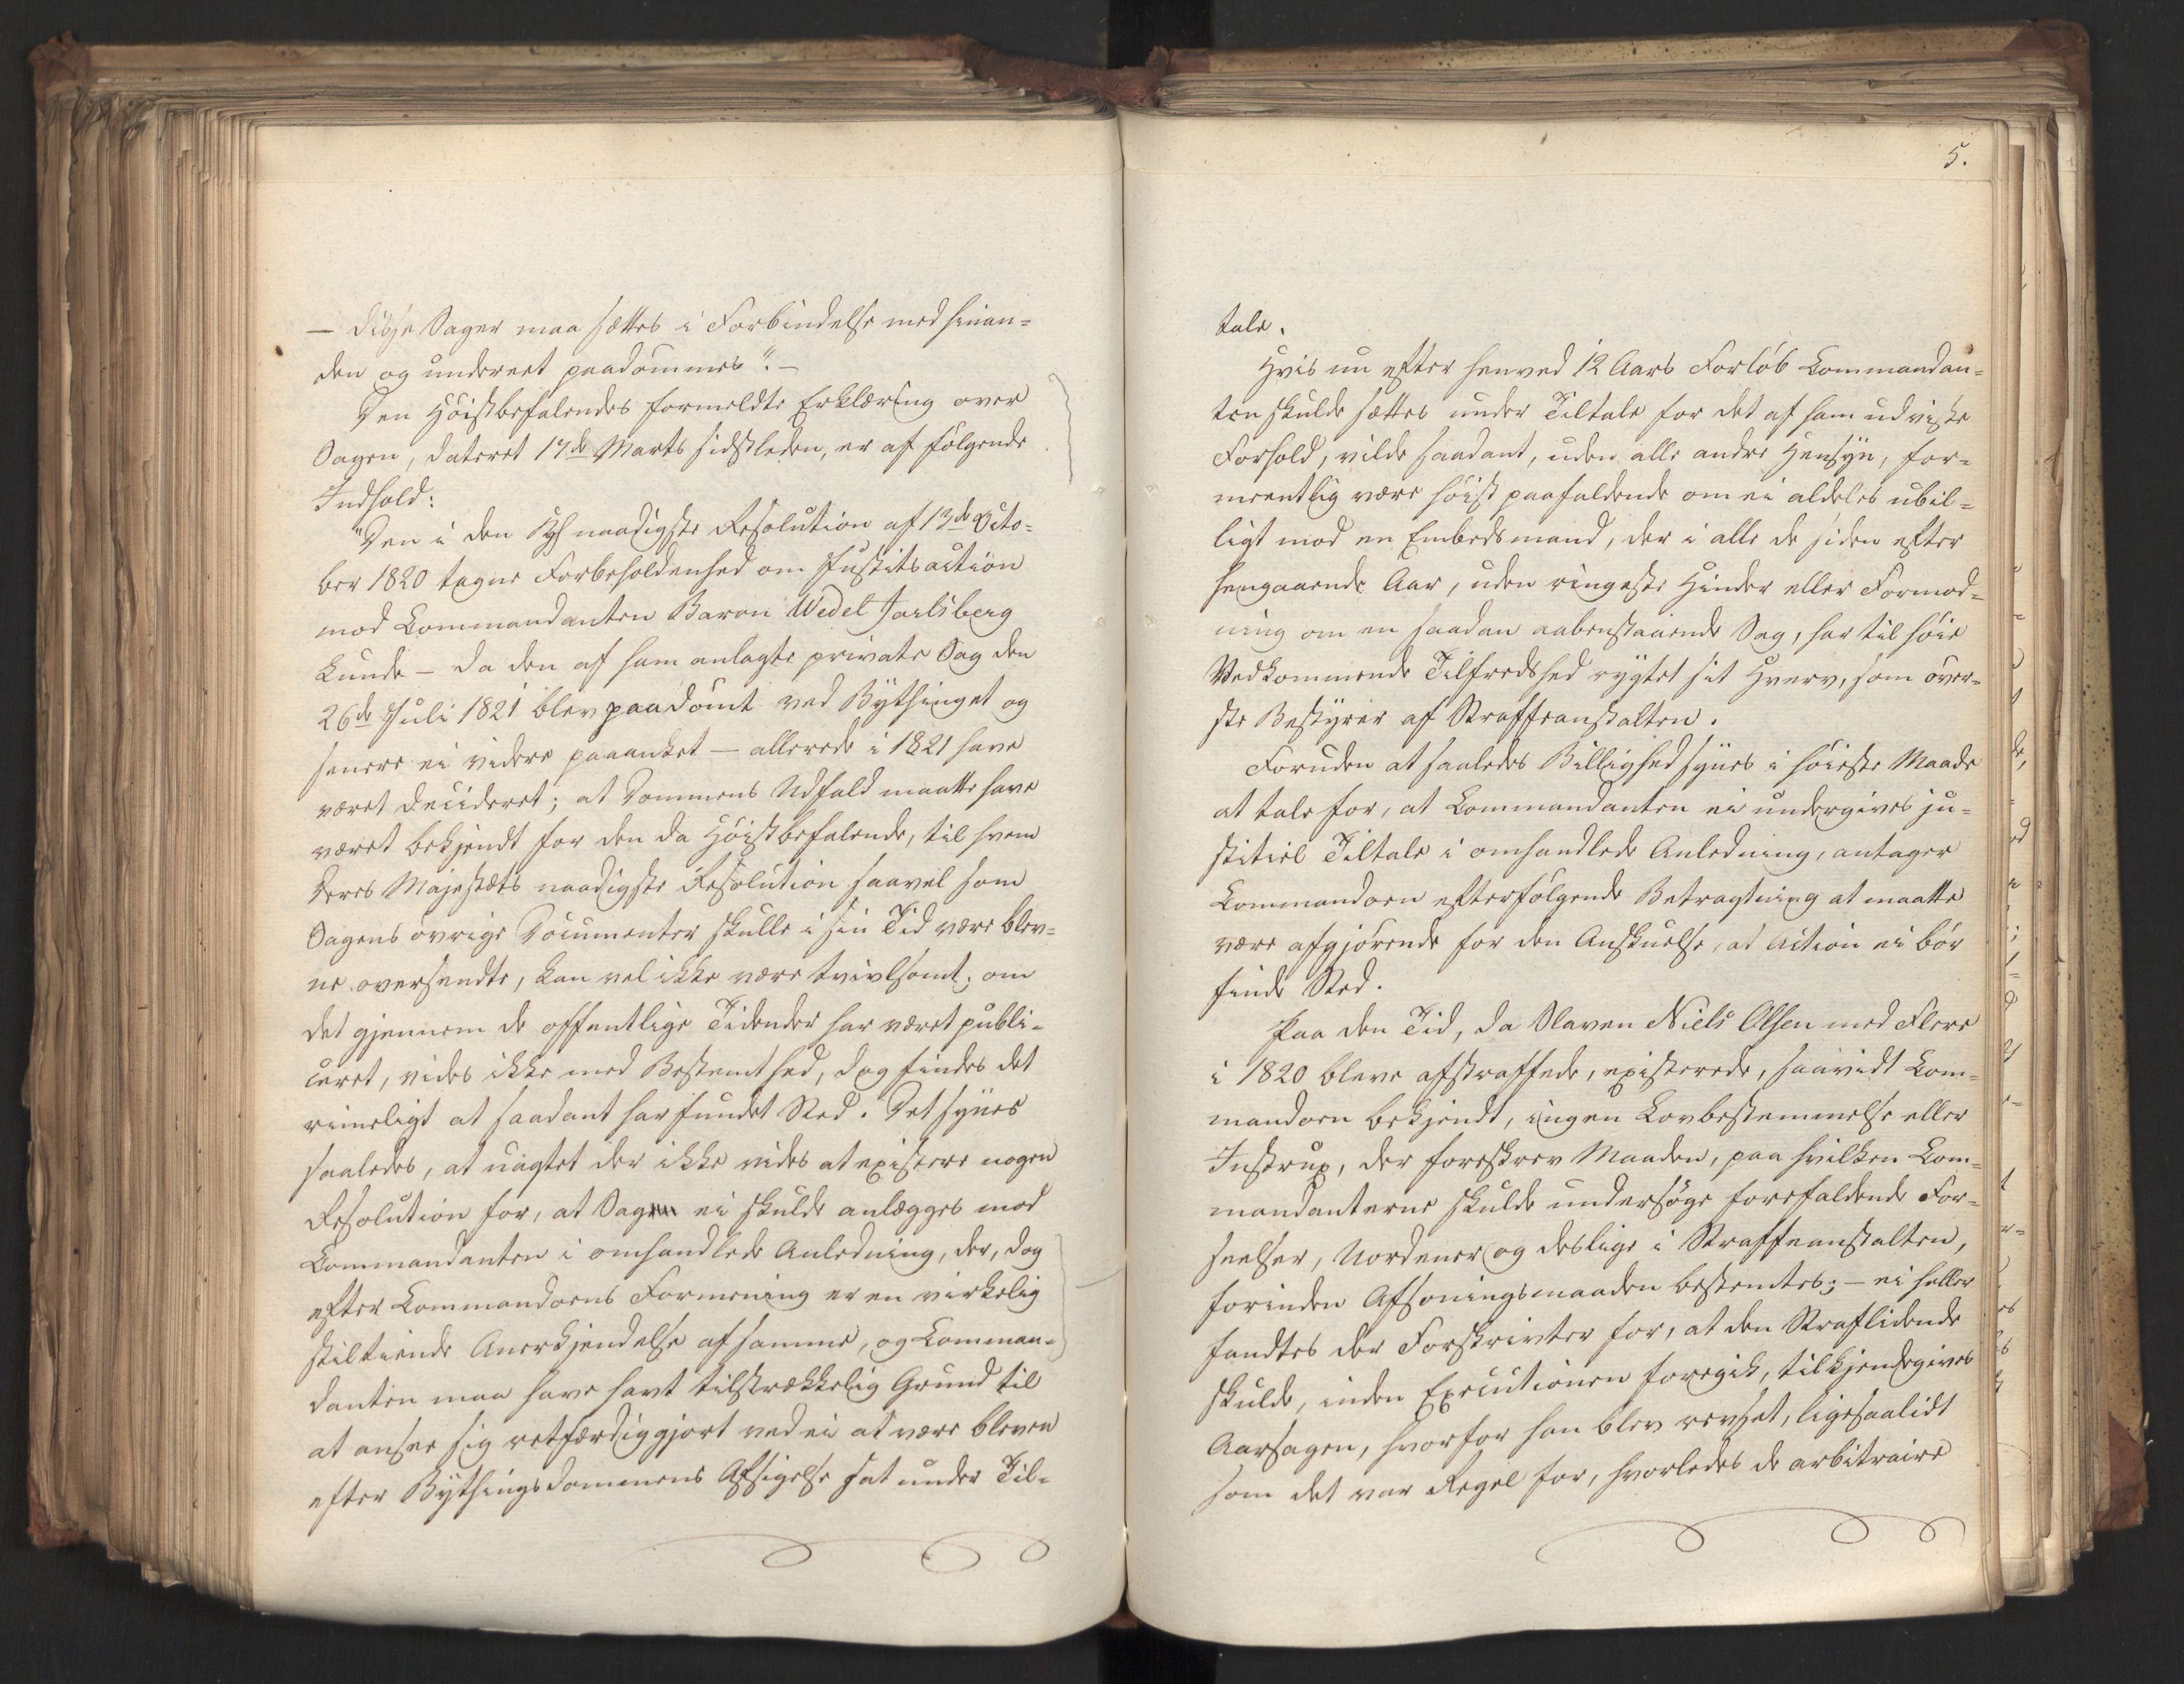 — disse Sager maa sættes i Forbindelse med hinan-
den og underret paadømmes". —
Den Høistbefalendes formeldte Erklæring over
Sagen, dateret 17de Marts sidstleden, er af følgende
Indhold:
"Den i den naadigste Resolution af 13de Octo-
ber 1820 tagne Forbeholdenhed om Justitsaction
mod Commandanten Baron Wedel Jarlsberg
kunde – da den af ham anlagte private Sag den
26de Juli 1821 blev paadømt ved Bythinget og
senere ei videre paaanket — allerede i 1821 have
været decideret; at Dommens Udfald maatte have
været bekjendt for den da Høistbefalende, til hvem
Deres Majestæts naadigste Resolution saavel som
Sagens øvrige Documenter skulle i sin Tid være blev-
ne oversendte, kan vel ikke være tvivlsomt; om
det gjennem de offentlige Tidender har været publi-
ceret, vides ikke med Bestemthed, dog findes det
rimeligt at saadant har fundet Sted. Det synes
saaledes, at uagtet der ikke vides at existere nogen
Resolution for, at Sag ei skulde anlægges mod
Commandanten i omhandlede Anledning, der, dog
efter Commandoens Formening er en virkelig
stiltiende Anerkjendelse af samme, og Comman-
danten maa have havt tilstrækkelig Grund til
at ansee sig retfærdiggjort ved ei at være bleven
efter Bythingsdommens Afsigelse sat under Til-
5.
tale.
Hvis nu efter henved 12 Aars Forløb Commandan-
ten skulde sættes under Tiltale for det af ham udviste
Forhold, vilde saadant, uden alle andre Hensyn, for-
meentlig være høist paafaldende om ei aldeles ubil-
ligt mod en Embedsmand, der i alle de siden efter
hengaaende Aar, uden ringeste Hinder eller Formod-
ning om en saadan aabenstaaende Sag, har til høie
Vedkommende Tilfredshed rygtet sit Hverv, som øver-
ste Bestyrer af Straffeanstalten.
Foruden at saaledes Billighed synes i høieste Maade
at tale for, at Commandanten ei undergives ju-
stitiel Tiltale i omhandlede Anledning, antager
Commandoen efterfølgende Betragtning at maatte
være afgjørende for den Anskuelse, at Action ei bør
finde Sted.
Paa den Tid, da Slaven Niels Olsen med Flere
i 1820 bleve afstraffede, existerede, saavidt Com-
mandoen bekjendt, ingen Lovbestemmelse eller
Instrux, der foreskrev Maaden, paa hvilken Com-
mandanterne skulde undersøge forefaldende For-
seelser, Uordener og deslige i Straffeanstalten,
forinden Afsoningsmaaden bestemtes; — ei heller
fandtes der Forskrivter for, at den Straflidende
skulde, inden Executionen foregik, tilkjendegives
Aarsagen, hvorfor han blev revset, ligesaalidt
som det var Regel for, hvorledes de arbitraire